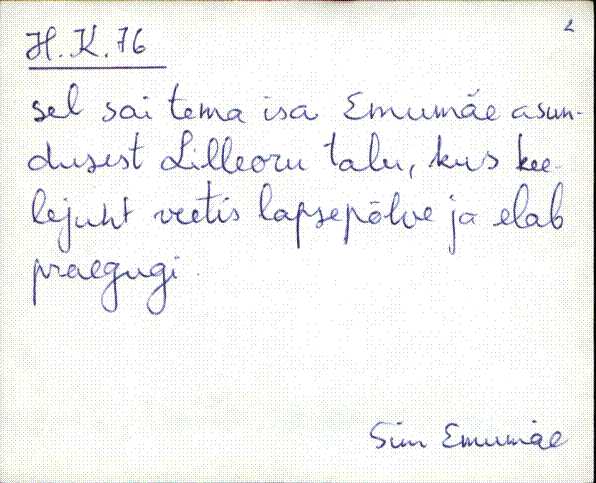 2
H.K.76
sel sai tema isa Emumäe asun-
dusest Lilleoru talu, kus kee-
lejuht veetis lapsepõlve ja elab
praegugi.
Sim Emumäe